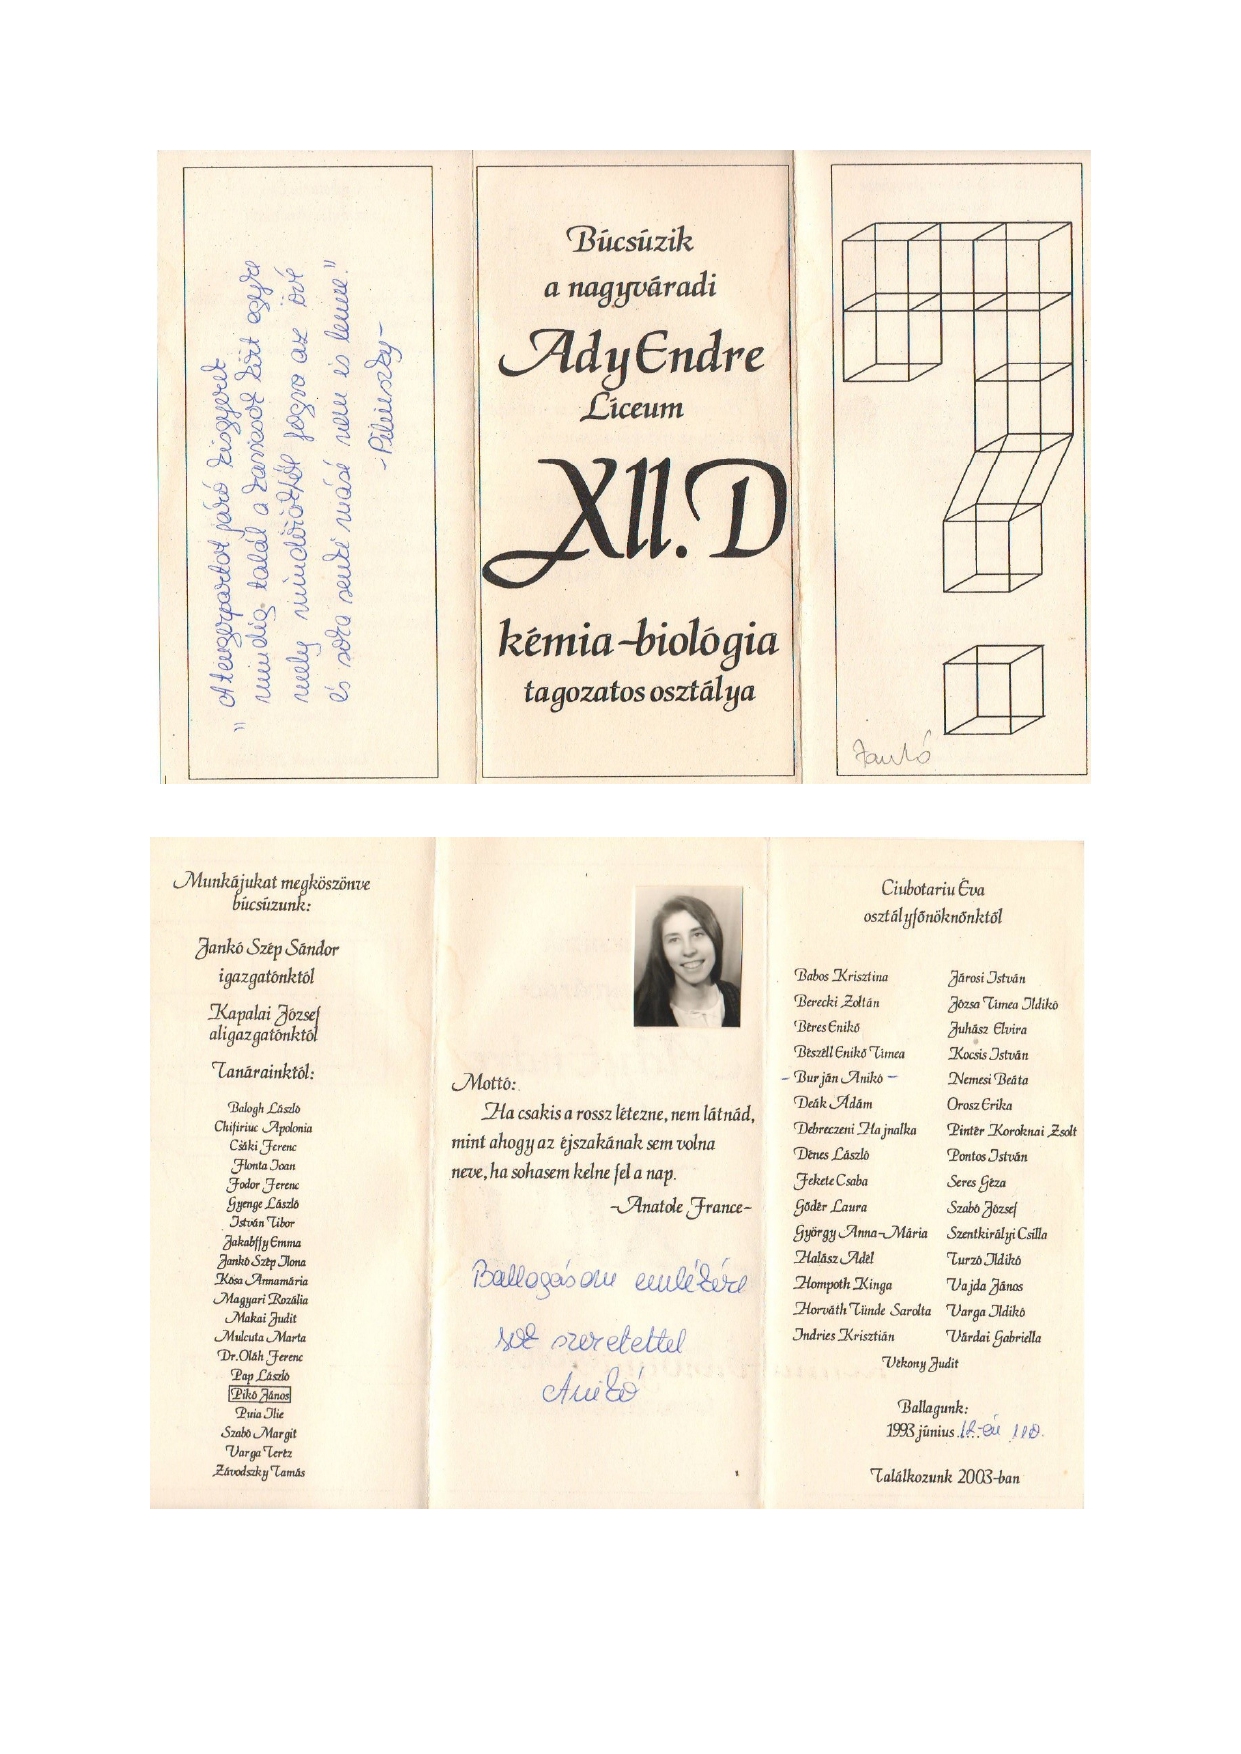 "A tengerpartot járó kisgyerek
mindig talál a kavicsok közt egyre
mely mindöröktől fogva az övé
és soha senki másé nem is lenne."
-Pilinszky-
Búcsúzik
a nagyváradi
Ady Endre
Líceum
XII. D
kémia-biológia
tagozatos osztálya
Jankó
Munkájukat megköszönve
búcsúzunk:
Jankó Szép Sándor
igazgatónktól
Kapalai József
aligazgatónktól
Tanárainktól:
Balogh László
Chifiriuc Apolonia
Csáki Ferenc
Flonta Ioan
Fodor Ferenc
Gyenge László
István Tibor
Jakabffy Emma
Jankó Szép Ilona
Kósa Annamária
Magyari Rozália
Makai Judit
Mulcuta Marta
Dr. Oláh Ferenc
Pap László
Pikó János
Puia Ilie
Szabó Margit
Varga Tertz
Závodszky Tamás
Mottó:
Ha csakis a rossz létezne, nem látnád,
mint ahogy az éjszakának sem volna
neve, ha sohasem kelne fel a nap.
-Anatole France-
Ballagásom emlékére
sok szeretettel
Anikó
Ciubotariu Éva
osztályfőnöknőnktől
Babos Krisztina
Berecki Zoltán
Béres Enikő
Bészéll Enikő Tímea
- Burján Anikó -
Deák Ádám
Debreczeni Hajnalka
Dénes László
Fekete Csaba
Gődér Laura
György Anna-Mária
Halász Adél
Hompoth Kinga
Horváth Tünde Sarolta
Indries Krisztián
Járosi István
Józsa Tímea Ildikó
Juhász Elvira
Kocsis István
Nemesi Beáta
Orosz Erika
Pintér Koroknai Zsolt
Pontos István
Seres Géza
Szabó József
Szentkirályi Csilla
Turzó Ildikó
Vajda János
Varga Ildikó
Várdai Gabriella
Vékony Judit
Ballagunk:
1993 június 12.-én
Találkozunk 2003-ban